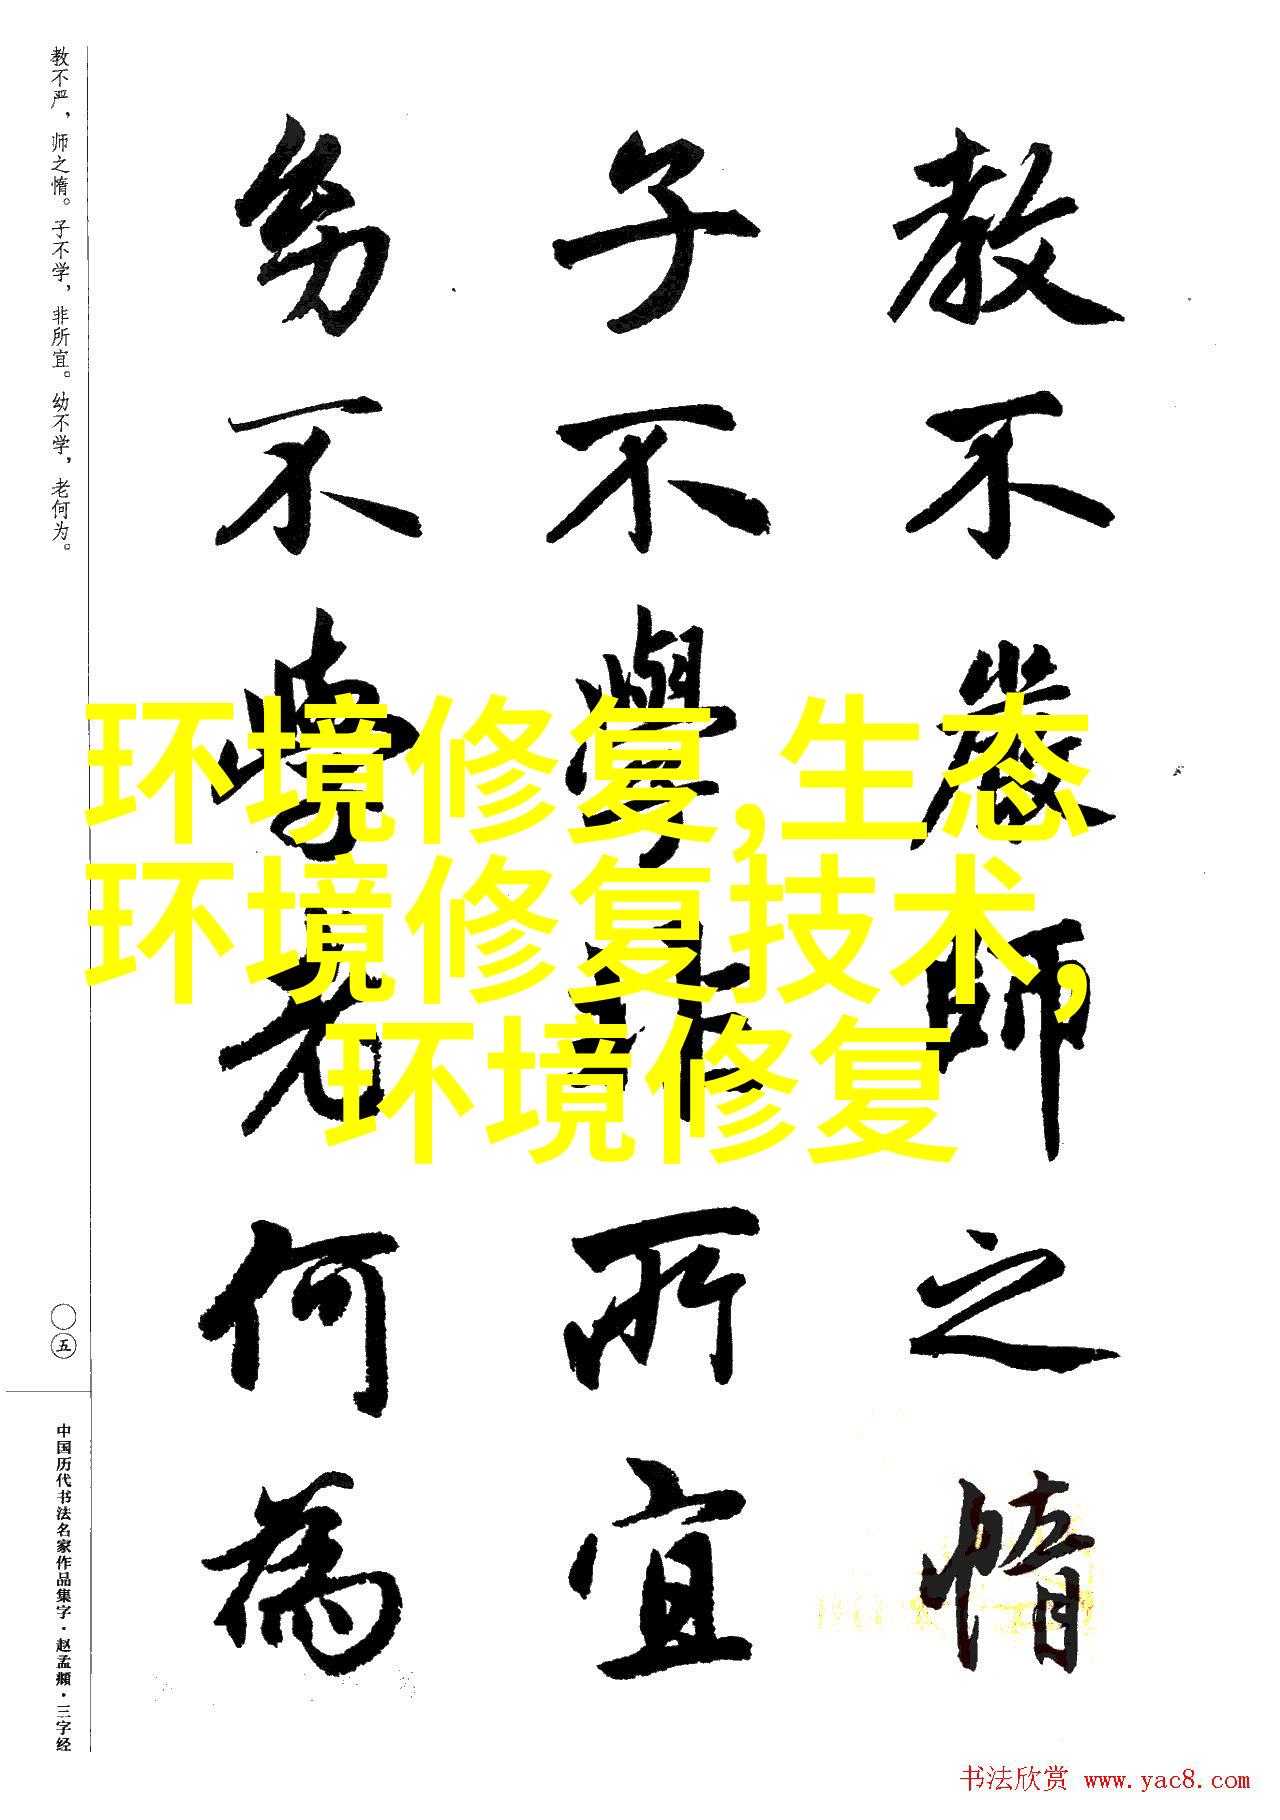 教不嚴師之惰
子不學非所宜
幼不學老何為
环境修复,生态
环境修复技术,
环境修复
教不严，师之惰。子不学，非所宜。幼不学，老何为。
〇五
中国历代书法名家作品集字·赵孟頫·三字经
书法欣赏 www.yac8.com